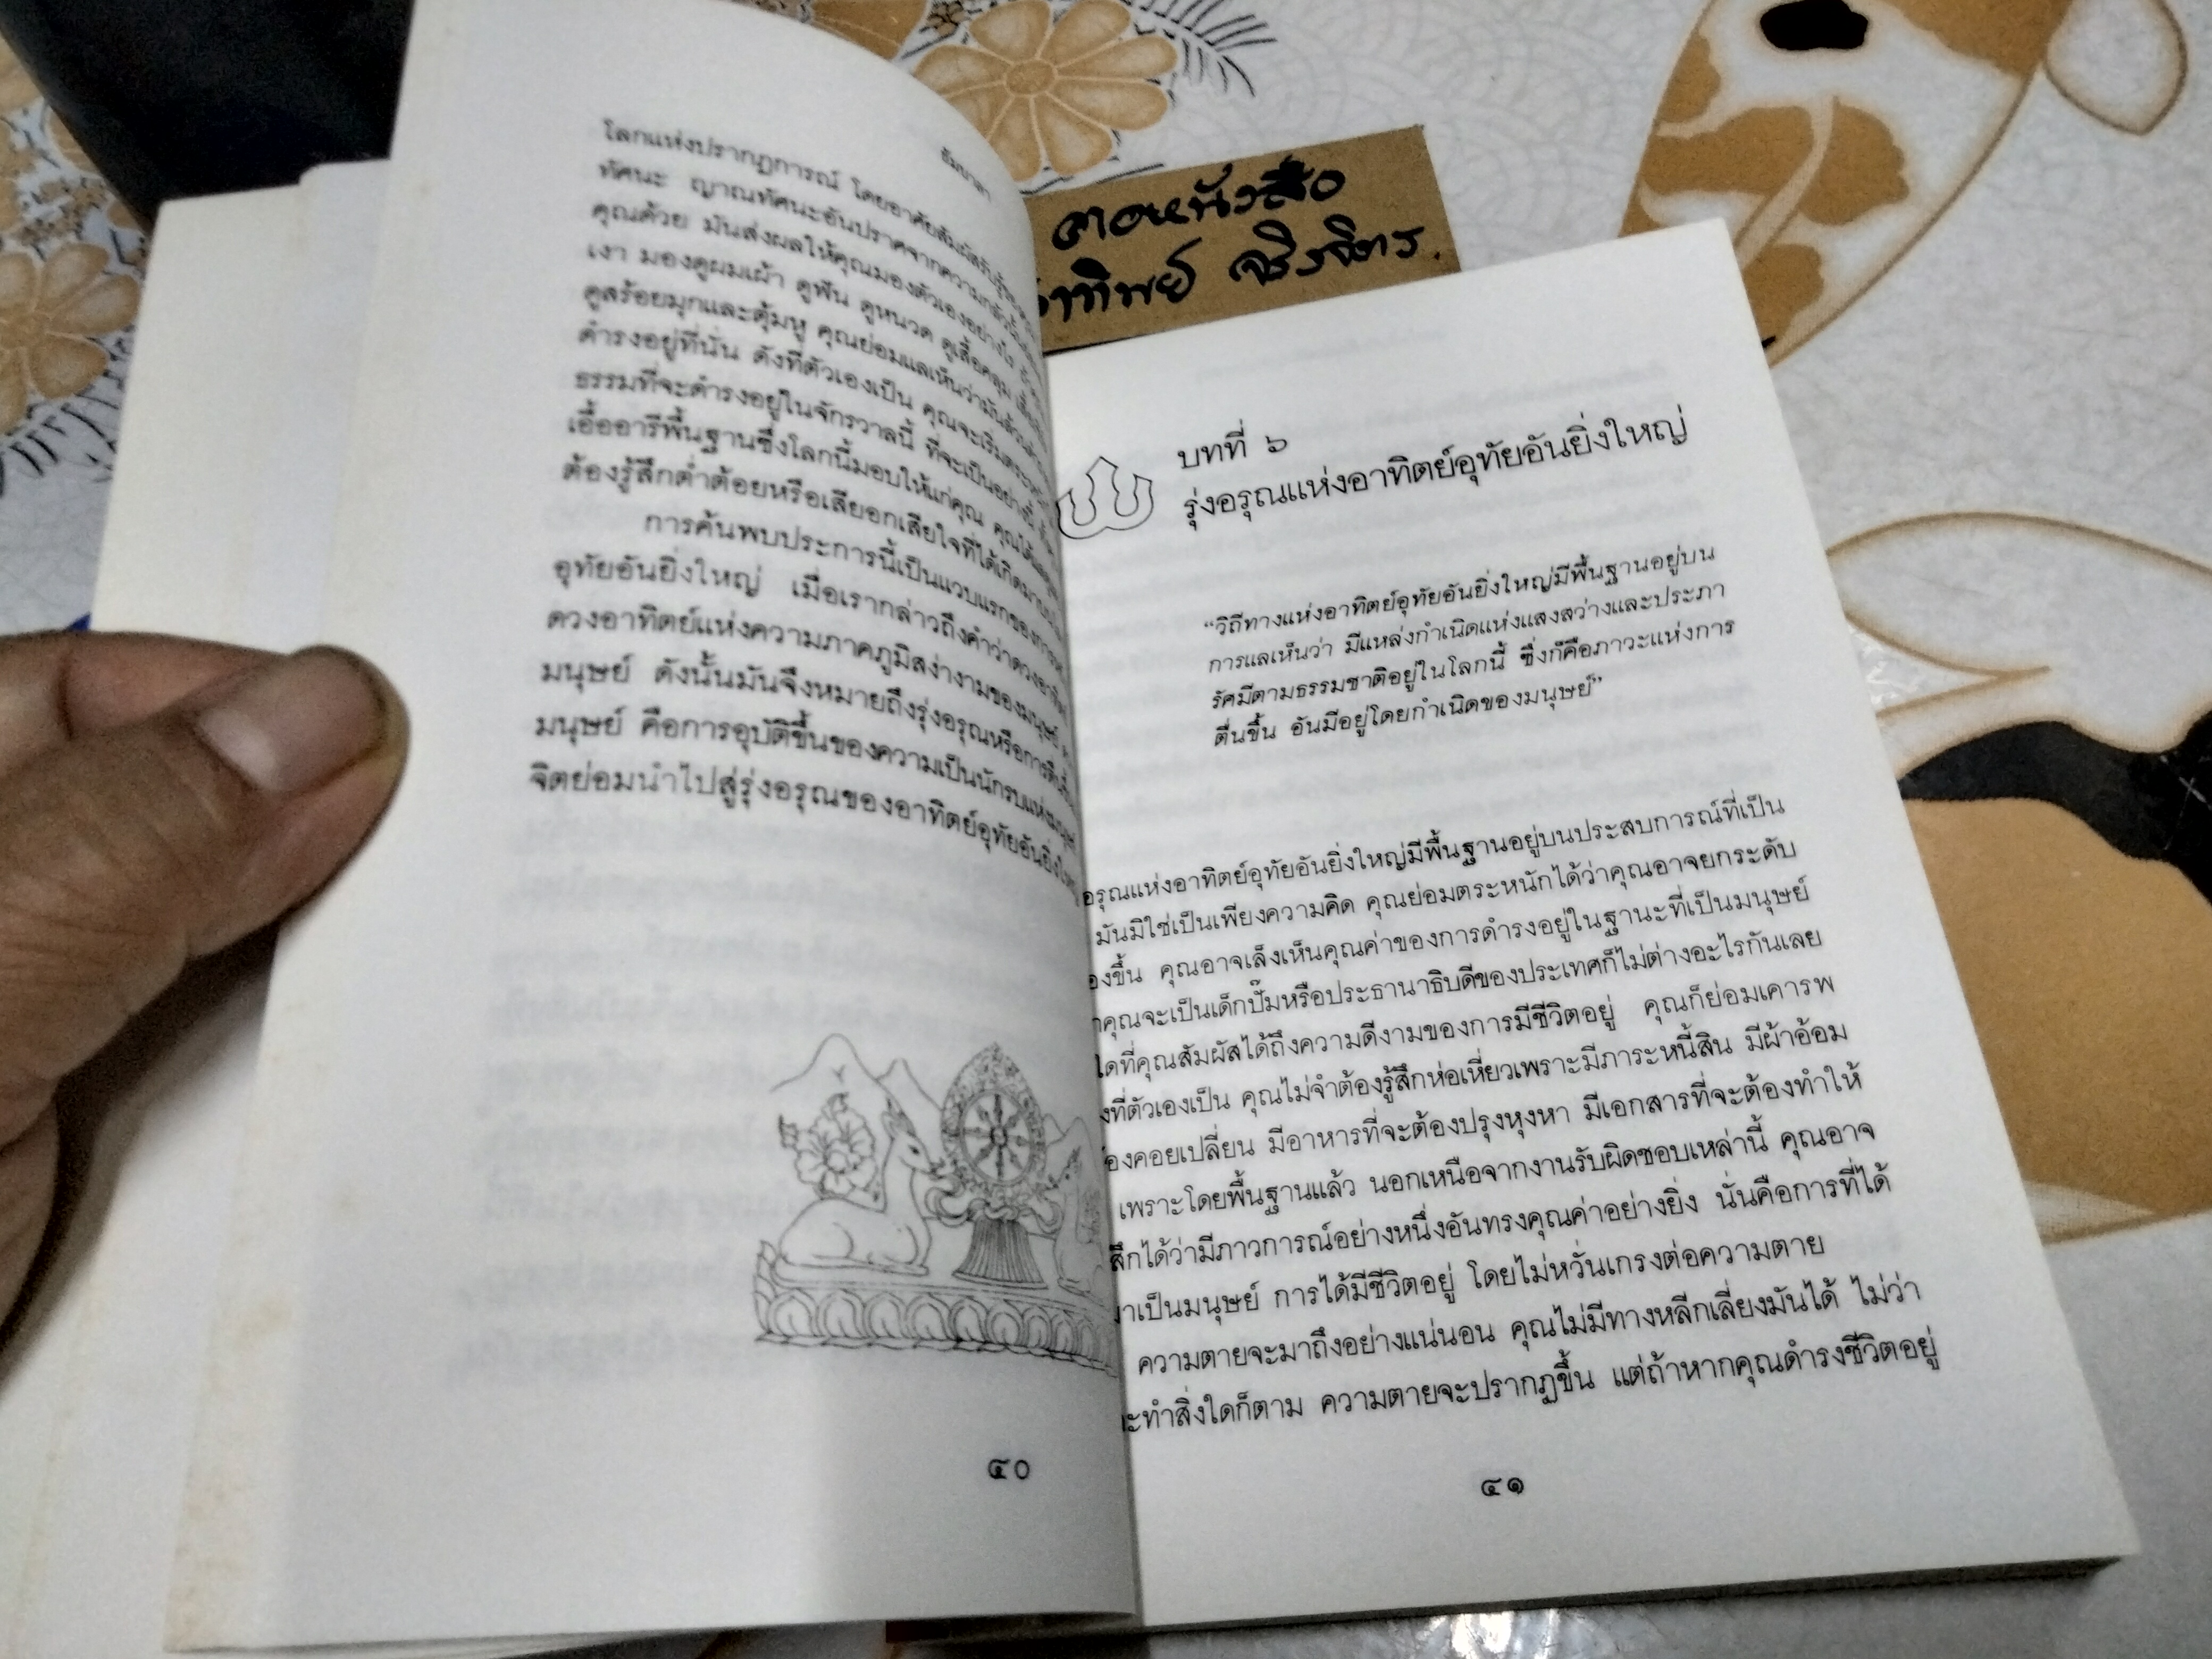 ชัมบาลา
โลกแห่งปรากฏการณ์ โดยอาศัยสัมผัสรับรู้
ทัศนะ ญาณทัศนะอันปราศจากความกลัวนั้น
คุณด้วย มันส่งผลให้คุณมองตัวเองอย่างไร
เงา มองดูผมเผ้า ดูฟัน ดูหนวด ดูเสื้อคลุม
ดูสร้อยมุกและตุ้มหู คุณย่อมแลเห็นว่ามันล้วน
ดำรงอยู่ที่นั่น ดังที่ตัวเองเป็น คุณจะเริ่มตระหนัก
ธรรมที่จะดำรงอยู่ในจักรวาลนี้ ที่จะเป็นอย่างนี้
เอื้ออารีพื้นฐานซึ่งโลกนี้มอบให้แก่คุณ คุณไม่
ต้องรู้สึกต่ำต้อยหรือเสียอกเสียใจที่ได้เกิดมา
การค้นพบประการนี้เป็นแวบแรกของการ
อุทัยอันยิ่งใหญ่ เมื่อเรากล่าวถึงคำว่าดวงอาทิตย์
ดวงอาทิตย์แห่งความภาคภูมิสง่างามของมนุษย์
มนุษย์ ดังนั้นมันจึงหมายถึงรุ่งอรุณหรือการตื่นขึ้น
มนุษย์ คือการอุบัติขึ้นของความเป็นนักรบแห่งมนุษย์
จิตย่อมนำไปสู่รุ่งอรุณของอาทิตย์อุทัยอันยิ่งใหญ่
๔๐
ตาอหนังสือ
าทิพย์ จริงจิตร.
บทที่ ๖
รุ่งอรุณแห่งอาทิตย์อุทัยอันยิ่งใหญ่
“วิถีทางแห่งอาทิตย์อุทัยอันยิ่งใหญ่มีพื้นฐานอยู่บน
การแลเห็นว่า มีแหล่งกำเนิดแห่งแสงสว่างและประภา
รัศมีตามธรรมชาติอยู่ในโลกนี้ ซึ่งก็คือภาวะแห่งการ
ตื่นขึ้น อันมีอยู่โดยกำเนิดของมนุษย์”
อรุณแห่งอาทิตย์อุทัยอันยิ่งใหญ่มีพื้นฐานอยู่บนประสบการณ์ที่เป็น
มันมิใช่เป็นเพียงความคิด คุณย่อมตระหนักได้ว่าคุณอาจยกระดับ
องขึ้น คุณอาจเล็งเห็นคุณค่าของการดำรงอยู่ในฐานะที่เป็นมนุษย์
าคุณจะเป็นเด็กปั๊มหรือประธานาธิบดีของประเทศก็ไม่ต่างอะไรกันเลย
ใดที่คุณสัมผัสได้ถึงความดีงามของการมีชีวิตอยู่ คุณก็ย่อมเคารพ
งที่ตัวเองเป็น คุณไม่จำต้องรู้สึกห่อเหี่ยวเพราะมีภาระหนี้สิน มีผ้าอ้อม
้องคอยเปลี่ยน มีอาหารที่จะต้องปรุงหุงหา มีเอกสารที่จะต้องทำให้
เพราะโดยพื้นฐานแล้ว นอกเหนือจากงานรับผิดชอบเหล่านี้ คุณอาจ
สึกได้ว่ามีภาวการณ์อย่างหนึ่งอันทรงคุณค่าอย่างยิ่ง นั่นคือการที่ได้
มาเป็นมนุษย์ การได้มีชีวิตอยู่ โดยไม่หวั่นเกรงต่อความตาย
ความตายจะมาถึงอย่างแน่นอน คุณไม่มีทางหลีกเลี่ยงมันได้ ไม่ว่า
ะทำสิ่งใดก็ตาม ความตายจะปรากฏขึ้น แต่ถ้าหากคุณดำรงชีวิตอยู่
๔๑